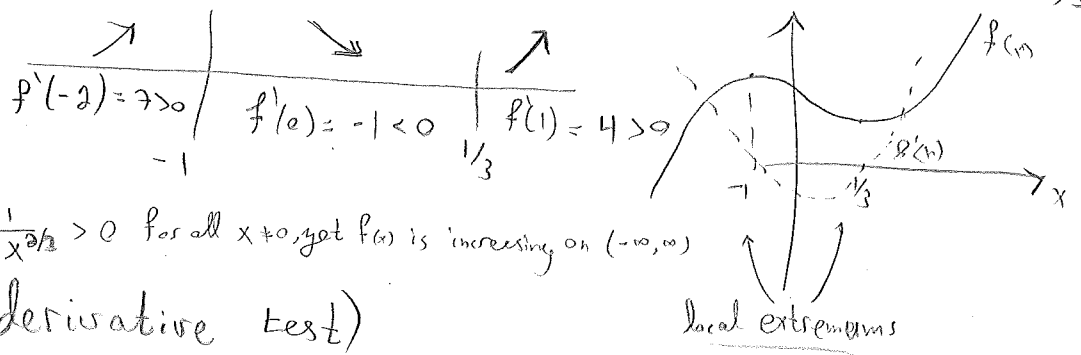 f(x)
f'(-2) = 7>0
f'(0) = -1 < 0
f'(1) = 4 > 0
-1
1/3
f'(x)
-1
1/3
x
> 0 for all x ≠ 0, yet f(x) is increasing on (-∞, ∞)
derivative test)
local extremums